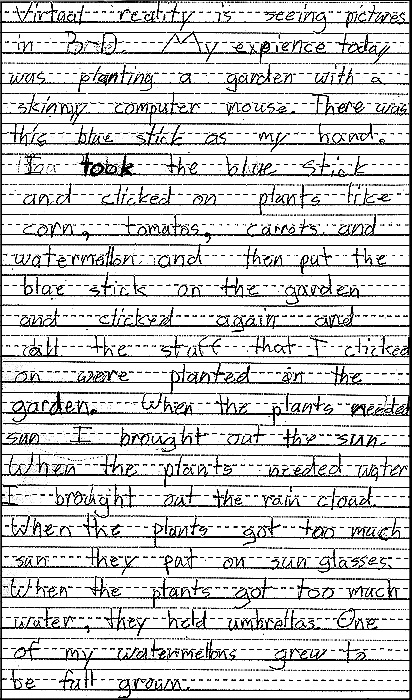 Virtual reality is seeing pictures
in 3-D. My expience today
was planting a garden with a
skinny computer mouse. There was
this blue stick as my hand.
I took the blue stick
and clicked on plants like
corn, tomatos, carrots and
watermellon and then put the
blue stick on the garden
and clicked again and
all the stuff that I clicked
on were planted in the
garden. When the plants needed
sun I brought out the sun.
When the plants needed water
I brought out the rain cloud.
When the plants got too much
sun they put on sunglasses.
When the plants got too much
water, they held umbrellas. One
of my watermellons grew to
be full grown.